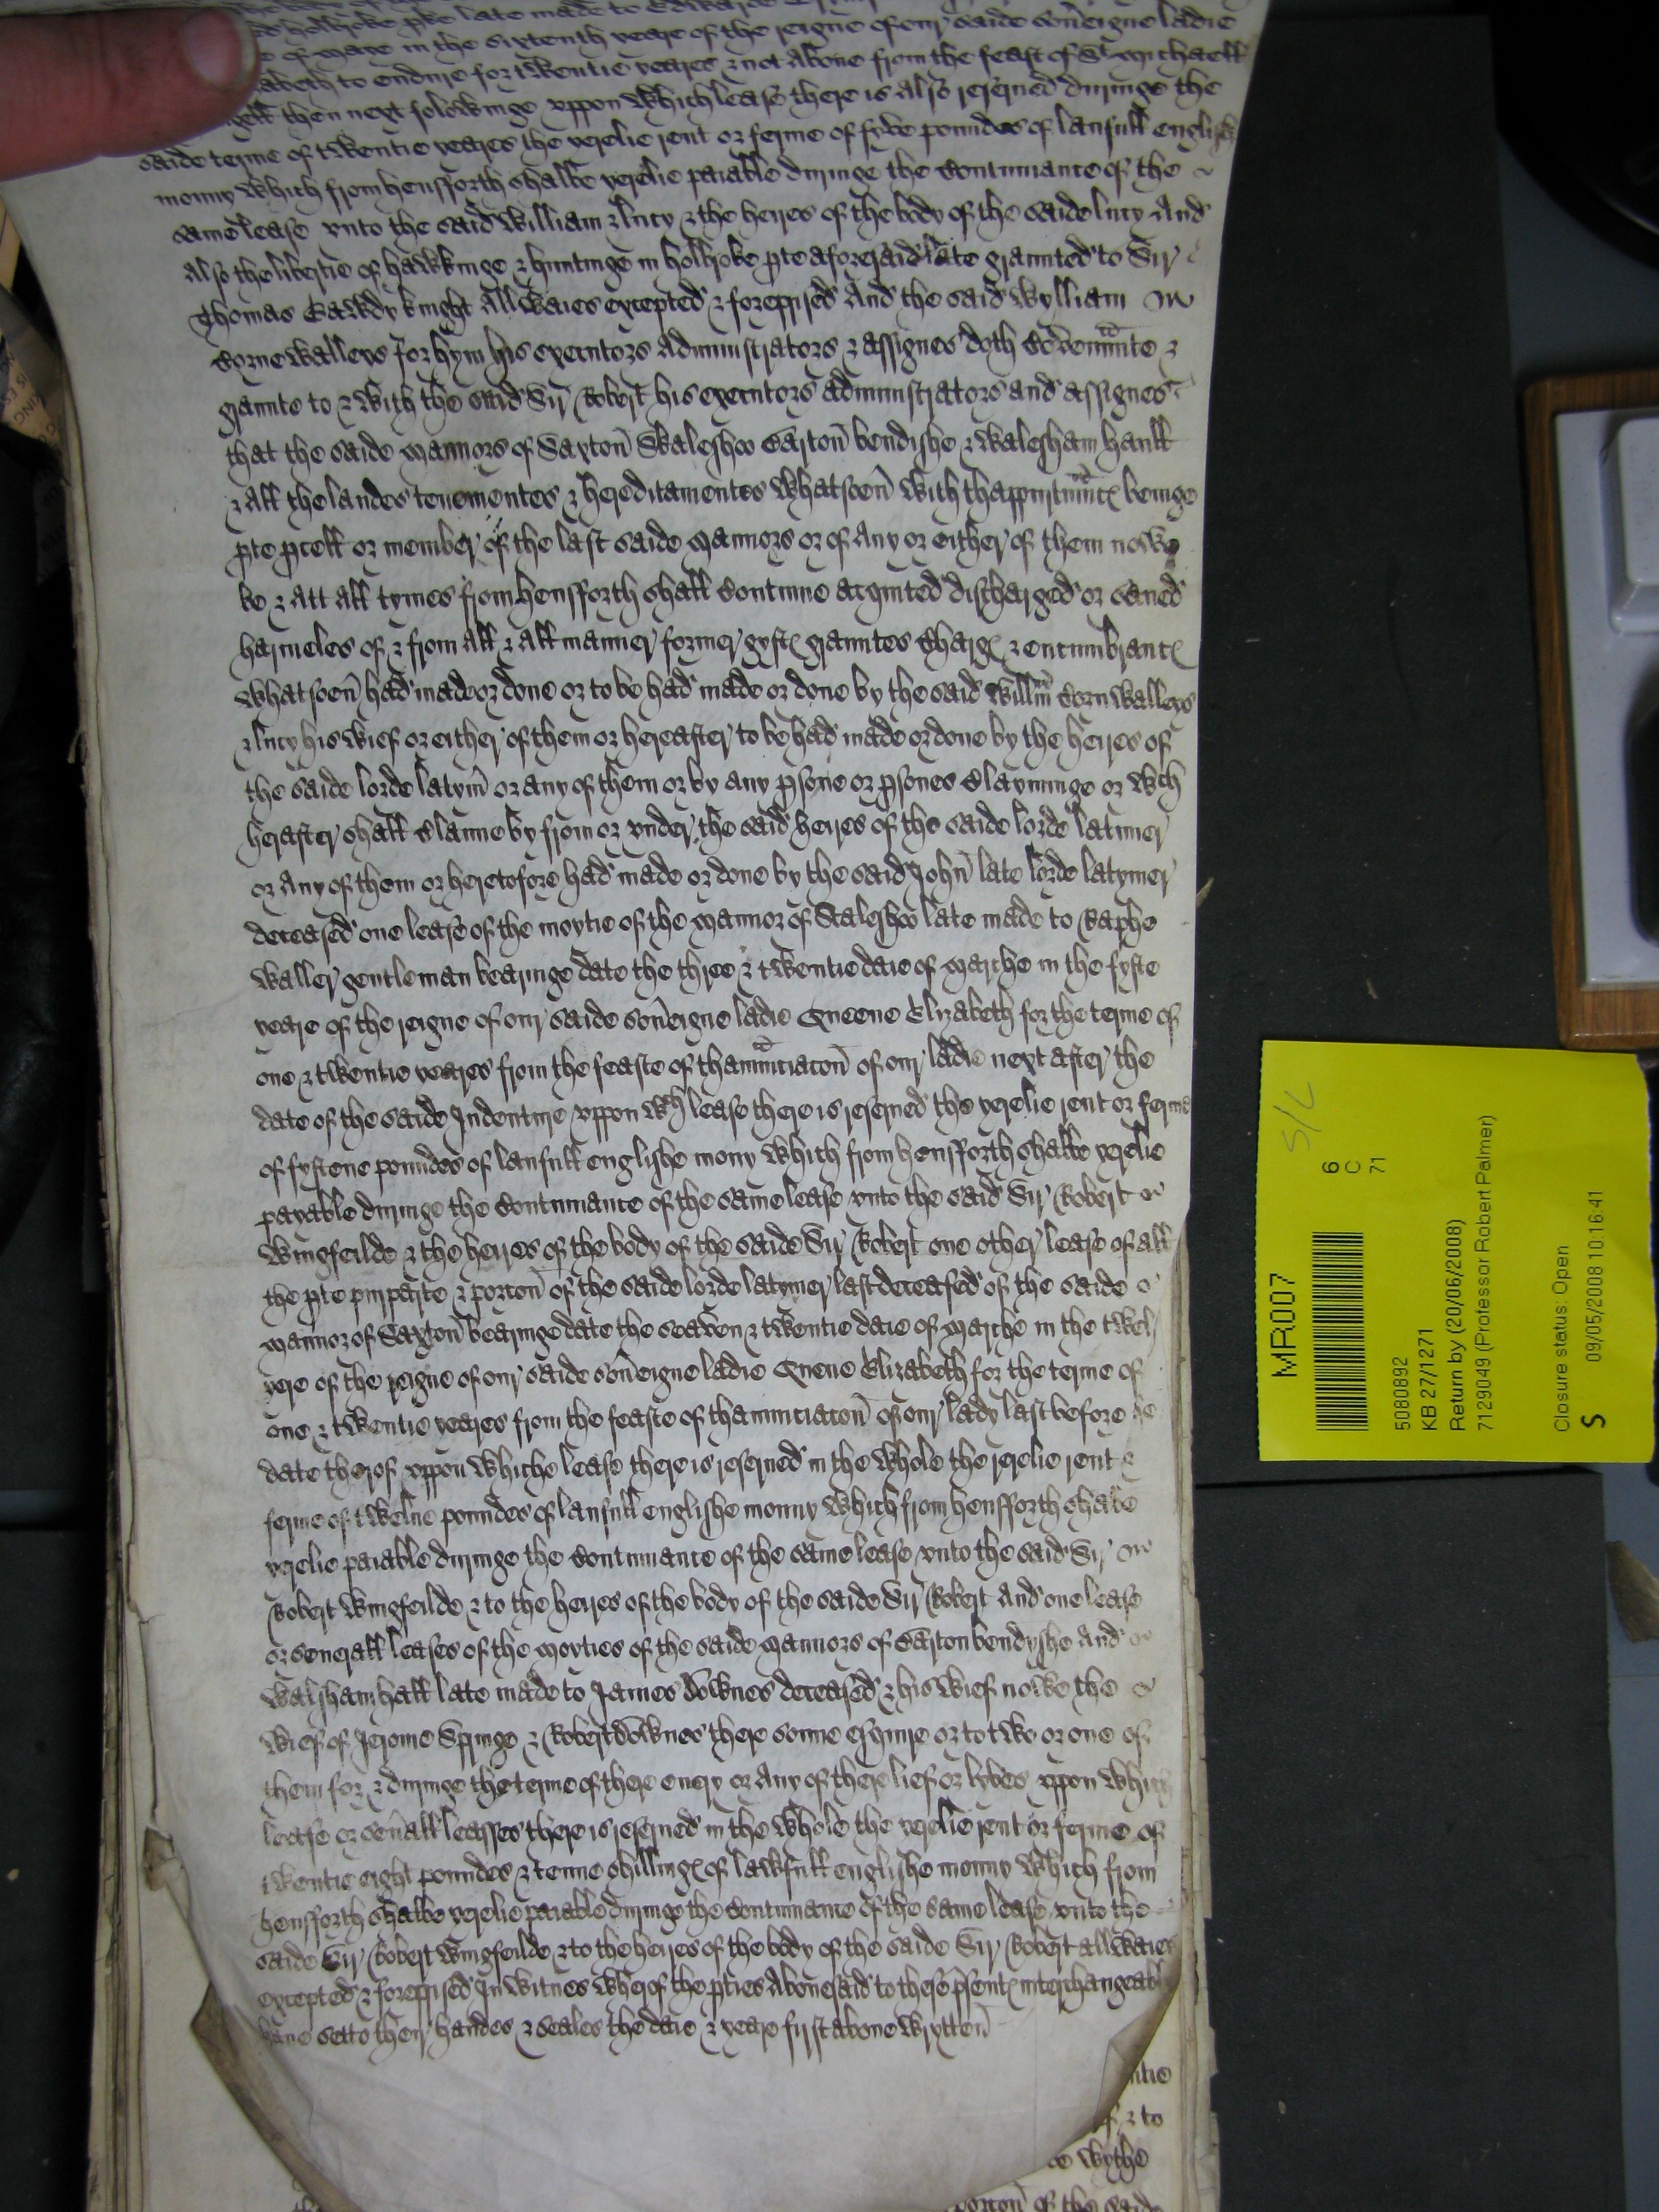 holbroke pke late made to Edwarde
of Maye in the sixtenth yeare of the reigne of our saide sov'eigne ladie
abeth to endure for twentie yeares & not above from the feast of St Michaell
gell then next folowinge uppon which lease there is also reserved duringe the
saide terme of twentie yeares the yerelie rent or ferme of fyve poundes of laufull english
monny which from hensfforth shalbe yerelie paiable duringe the contynuance of the
same lease unto the said William & lucy & the heires of the body of the saide lucy And
Also the libertie of hawkinge & huntinge in holbroke pke aforesaid late graunted to Sir
Thomas Cawdy knight Allwaies excepted & foreprised And the said Wylliam
Cornewalleys for hym his executors Administrators & assignes doth covennte &
graunte to & with the said Sir Robert his executors administrators and assignes
that the saide Mannors of Saxton Skaleshoo Barton bendishe & Walesham hall
& all the landes tenementes & hereditamentes whatsoev' with thappurtnnc beinge
pte pcell or member of the last saide Mannors or of Any or either of them nowe
be & att all tymes from hensfforth shall contynue acquited discharged or saved
harmeles of & from all & all manner former gyft grauntes charg & encumbranc
whatsoev' had made or done or to be had made or done by the said Willm Cornwalleys
& lucy his wief or either of them or hereafter to be had made or done by the heires of
the saide lorde latym' or any of them or by any psone or psones claymynge or wch
herafter shall clayme by from or under the said heires of the saide lorde latimer
or Any of them or heretofore had made or done by the said John late lorde latymer
deceased one lease of the moytie of the Mannor of Scaleshoo late made to Raphe
Waller gentleman bearinge date the three & twentie daie of Marche in the fyfte
yeare of the reigne of our saide sov'eigne ladie Queene Elizabeth for the terme of
one & twentie yeares from the feaste of thannunciacon of our ladie next after the
date of the saide Indenture uppon wch lease there is reserved the yerelie rent or ferme
of fyftene poundes of laufull englishe mony which from hensfforth shalbe yerelie
payable duringe the contynuance of the same lease unto the said Sir Robert
Wingfeilde & the heires of the body of the saide Sir Robert one other lease of all
the pte purparte & porcon of the saide lorde latymer last deceased of the saide
Mannor of Saxton bearinge date the seaven & twentie daie of Marche in the twel
yere of the reigne of our saide sov'eigne ladie Quene Elizabeth for the terme of
one & twentie yeares from the feaste of thannunciacon of our lady last before
date therof uppon whiche lease there is reserved in the whole the yerelie rent
ferme of twelve poundes of laufull englishe monny which from hensfforth shalbe
yerelie paiable duringe the contynuance of the same lease unto the said Sir
Robert Wingfeilde & to the heires of the body of the saide Sir Robert And one lease
or severall leases of the Moyties of the saide Mannors of Barton bendyshe And
Walsham hall late made to James Downes deceased & his wief nowe the
wief of Jerome Springe & Robert Downes there sonne esquire or to two or one of
them for & duringe the terme of there every or Any of there lief or lyves uppon which
lease or sev'all leasses there is reserved in the whole the yerelie rent or ferme of
twentie eight poundes & tenne shilling of lawfull englishe monny which from
hensfforth shalbe yerelie paiable duringe the contynuance of the same lease unto the
saide Sir Robert Wingfeilde & to the heires of the body of the saide Sir Robert allwaies
excepted & foreprised In witnes wherof the pties Abovesaid to these psent interchangeabl
have sett to their handes & seales the daie & yeare first above wrytten
ntie
& to
wythe
porcon of the saide
MR007
S/L
6
C
71
5080892
KB 27/1271
Return by (20/06/2008)
7129049 (Professor Robert Palmer)
Closure status: Open
S 09/05/2008 10:16:41